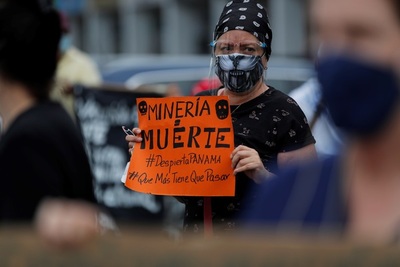 MINERÍA
=
MUERTE
#DespiertaPANAMA
#Que Más Tiene Que Pasar